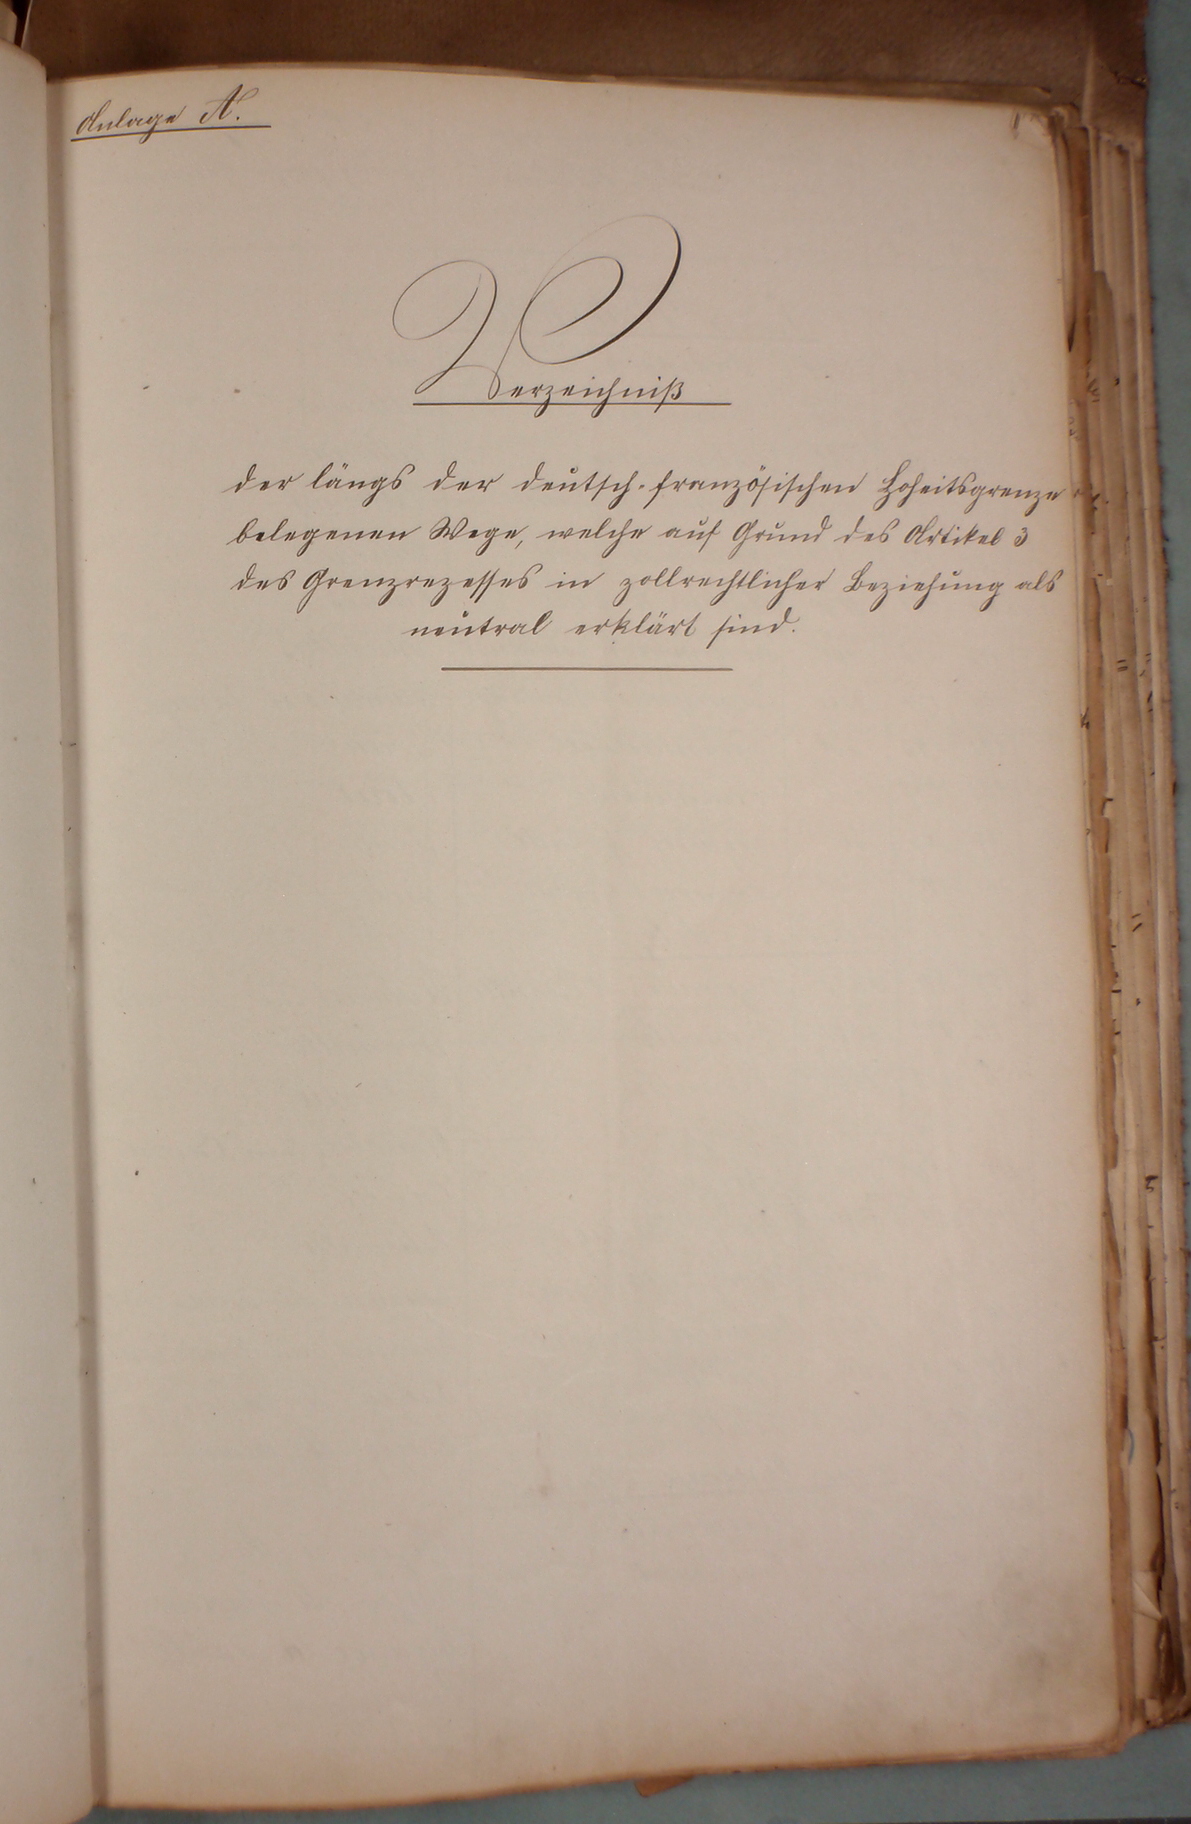 Anlage A.
Verzeichniß
der längs der deutsch-französischen Hoheitsgrenze
belegenen Wege, welche auf Grund des Artikel 3
des Grenzrezesses in zollrechtlicher Beziehung als
neutral erklärt sind.